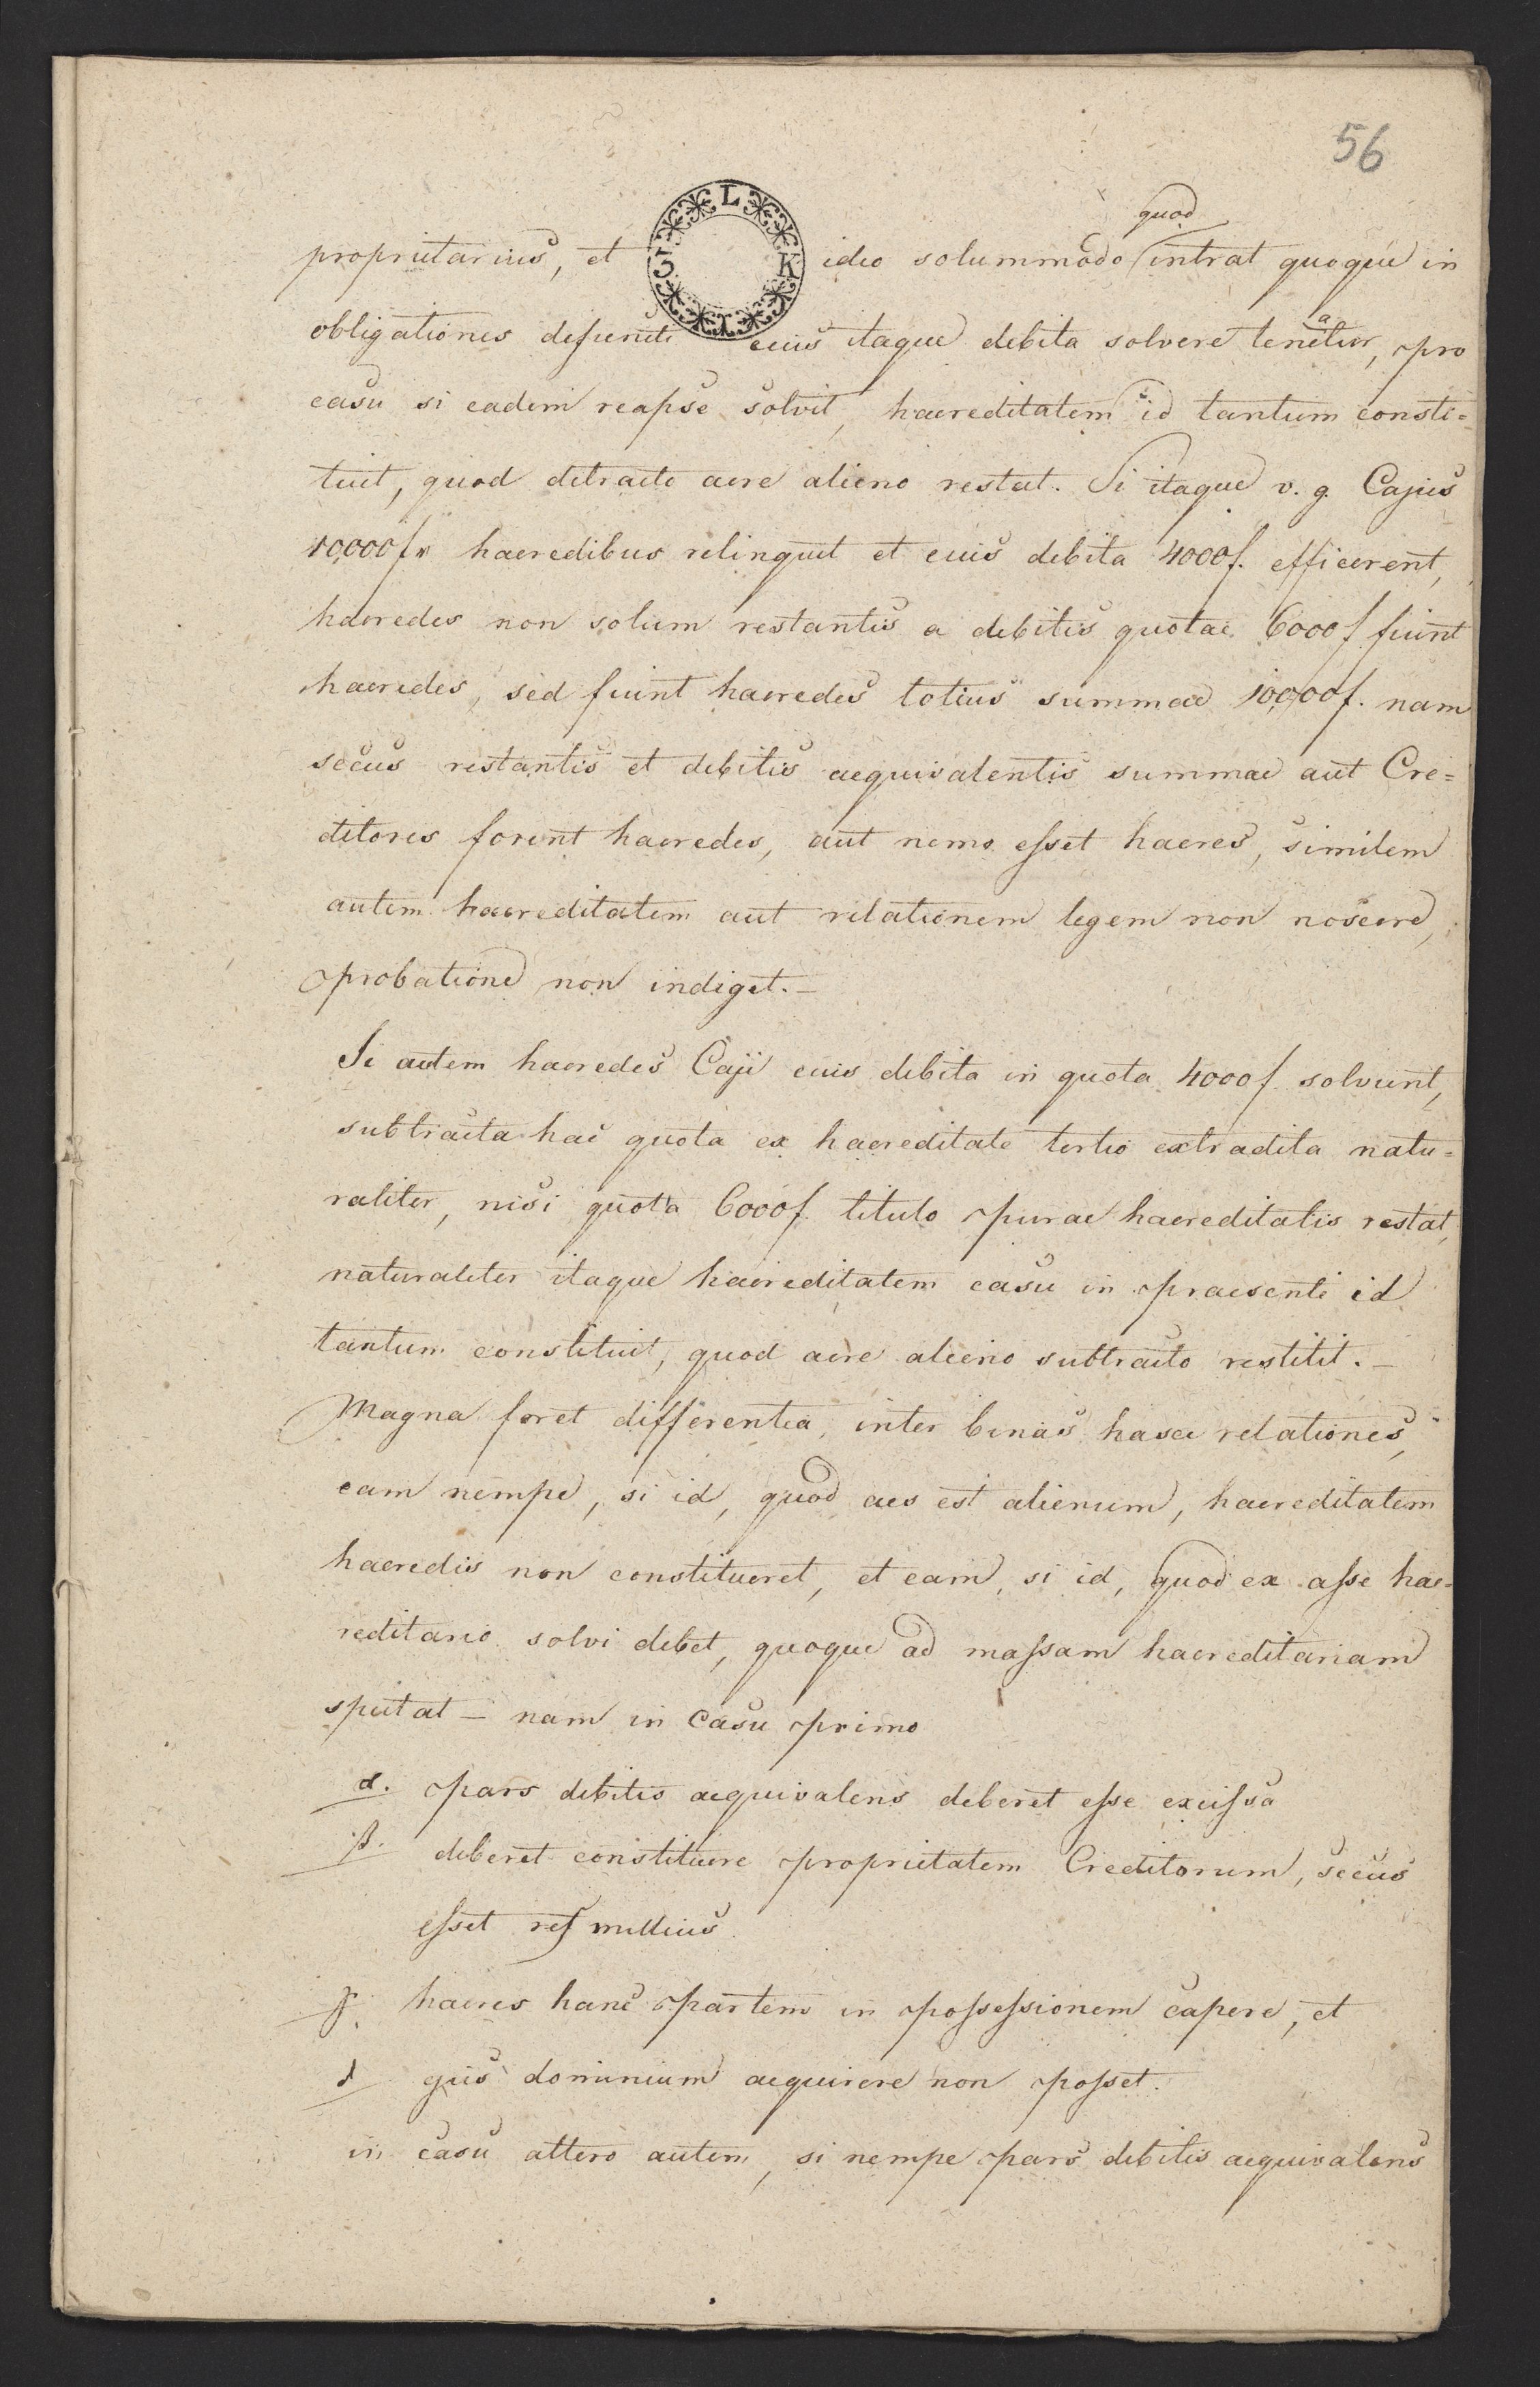 56
quod
proprietarius, et ideo solummodo intrat quoque in
obligationes defuncti eius itaque debita solvere tenetur, pro
casu si eadem reapse solvit, haereditatem id tantum consti=
tuit, quod detracto aere alieno restat. Si itaque v. g. Cajus
10,000f haeredibus relinquit et eius debita 4000f. efficerent,
haeredes non solum restantis a debitis quotae 6000f fiunt
haeredes, sed fiunt haeredes totius summae 10,000f. nam
secus restantis et debitis aequivalentis summae aut Cre=
ditores forent haeredes, aut nemo esset haeres, similem
autem haereditatem aut relationem legem non noscere,
probatione non indiget.–
Si autem haeredes Caji eius debita in quota 4000f. solvunt,
subtracta hac quota ex haereditate tertio extradita natu=
raliter, nisi quota 6000f. titulo purae haereditatis restat,
naturaliter itaque haereditatem casu in praesenti id
tantum constituit, quod aere alieno subtracto restitit.–
Magna foret differentia, inter binas hasce relationes,
eam nempe, si id, quod aes est alienum, haereditatem
haeredis non constitueret, et eam, si id, quod ex asse hae=
reditario solvi debet, quoque ad massam haereditariam
spectat – nam in Casu primo
α. pars debitis aequivalens deberet esse excissa
β. deberet constituere proprietatem Creditorum, secus
esset res nullius
γ. haeres hanc partem in possessionem capere, et
δ ejus dominium acquirere non posset.
in casu altero autem, si nempe pars debitis aequivalens
L
K
I
5